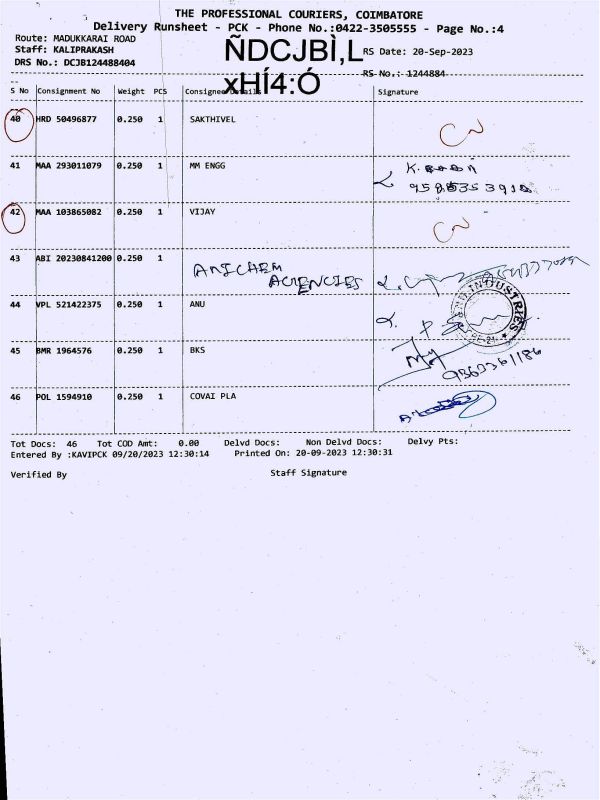 THE PROFESSIONAL COURIERS, COIMBATORE
Delivery Runsheet - PCK - Phone No.:0422-3505555 - Page No.:4
Route: MADUKKARAI ROAD
Staff: KALIPRAKASH ÑDCJBÌ,L RS Date: 20-Sep-2023
DRS No.: DCJB124488404
xHÍ4:Ó RS No.: 1244884
S No Consignment No Weight PCS Consignee Details Signature
40 HRD 50496877 0.250 1 SAKTHIVEL
41 MAA 293011079 0.250 1 MM ENGG
42 MAA 103865082 0.250 1 VIJAY
43 ABI 20230841200 0.250 1 ANICHEM
AGENCIES
44 VPL 521422375 0.250 1 ANU
INDUSTRIES
45 BMR 1964576 0.250 1 BKS
9363361186
46 POL 1594910 0.250 1 COVAI PLA
Tot Docs: 46 Tot COD Amt: 0.00 Delvd Docs: Non Delvd Docs: Delvy Pts:
Entered By :KAVIPCK 09/20/2023 12:30:14 Printed On: 20-09-2023 12:30:31
Verified By Staff Signature